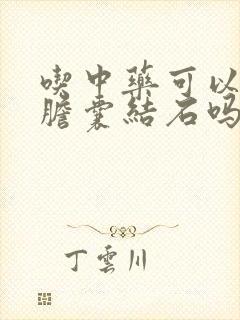 喫中藥可以
膽囊結石嗎
丁雲川